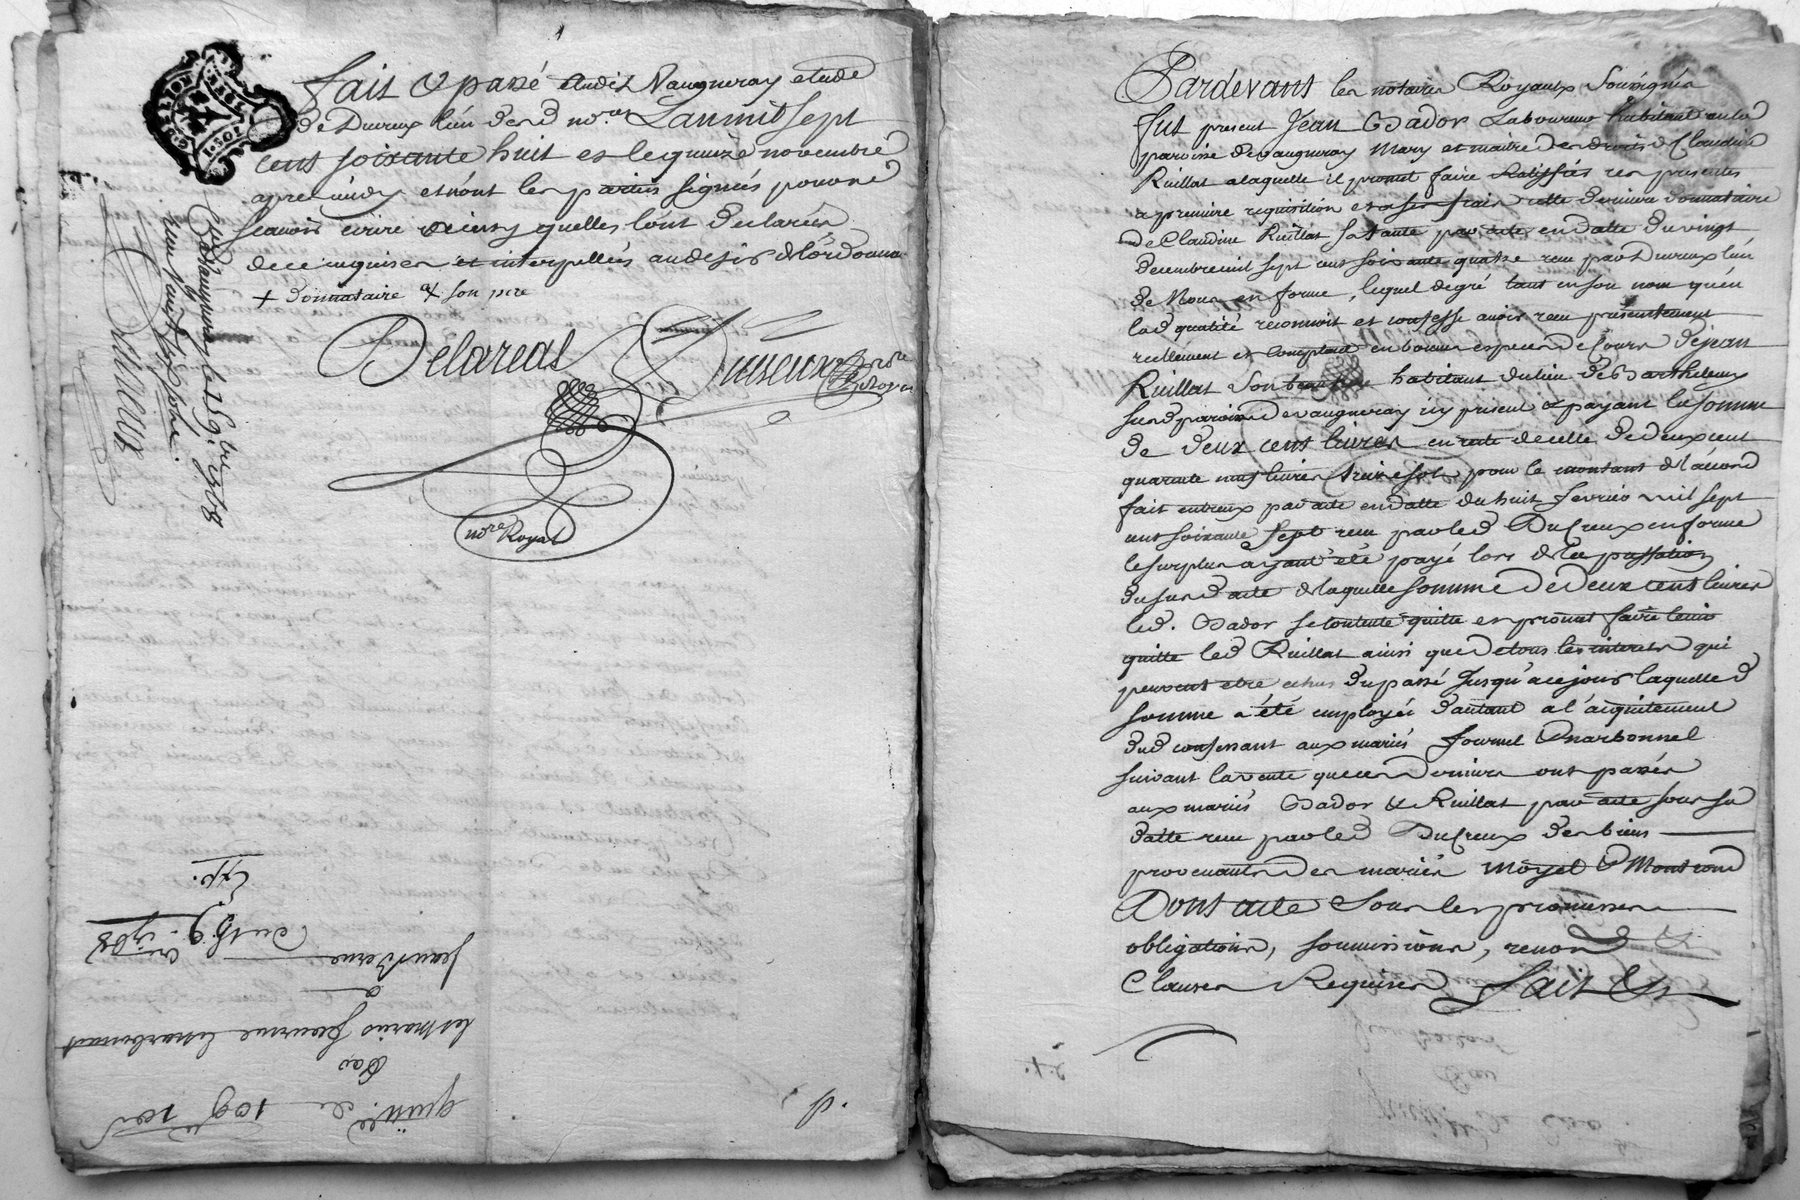 fait & passé audit Vaugneray etude
de Ducreux l'un desd nores L'an mil sept
cent soixante huit et le quinze novembre
apres midy et n'ont les parties signés pour ne
scavoir ecrire ainsy quelles l'ont declarés
de ce enquises et interpellées au desir de l'ordonnance
+ donnataire & son pere
Delareal Ducreux
nore Royal
Vaugneray le 9bre 1768
Ducreux
quitt. de 109
Par
les mariés fournel & narbonnel
a
jean
du 15 9bre 1768
Exp.
Pardevant les notaires Royaux Soussignés
fut present Jean Bador Laboureur habitant en la
paroisse de vaugneray Mary et maitre des droits de Claudine
Ruillat a laquelle il promet faire Ratiffiér ces presentes
a premiere requisition et a ses frais cette derniere donnataire
de Claudine Ruillat sa tante par acte en datte du vingt
decembre mil sept cent soixante quatre recu par Ducreux l'un
de Nous en forme, lequel degré tant en son nom qu'en
lad qualité reconnoit et confesse avoir recu presentement
reellement et comptant en bonnes especes de Cours de jean
Ruillat Son habitant du lieu de Barthelemy
susd paroisse de vaugneray icy present & payant la somme
de deux cent livres en reste de celle de deux cent
quarante neuf livres treize sols pour le montant de l'accord
fait entreux par acte en datte du huit fevrier mil sept
cent soixante sept recu par led Ducreux en forme
le surplus ayant été payé lors de la passation
du susd acte de laquelle somme de deux cent livres
led. Bador se contente quitte et promet faire tenir
quitte led Ruillat ainsi que de tous les interets qui
peuvent etre echus du passé Jusqu'a ce jour laquelle d
somme a été employée d'autant a l'acquitement
dud confessant aux mariés fournel & narbonnel
suivant la vente que ces derniers ont passés
aux mariés Bador & Ruillat par acte sous sa
datte recu par led Ducreux des biens
provenants des mariés Moyel & Montrond
Dont acte Sous les promesses
obligations, soumissions, renond
Clauses Requises fait &